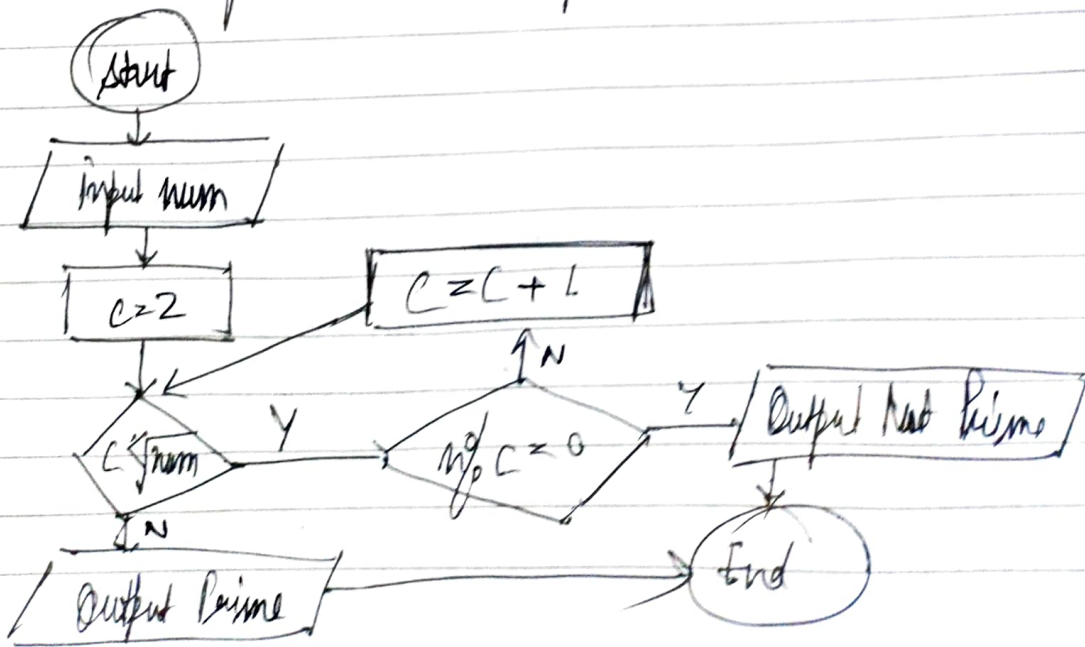 Start
Input num
C=2
C=C+1
N
C<√num
Y
n% C=0
Y
Output Not Prime
N
Output Prime
End